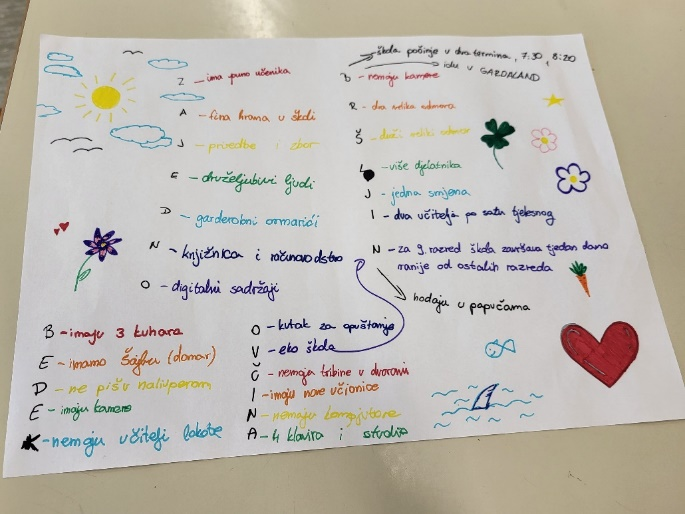 škola počinje u dva termina, 7:30, 8:20
idu u GARDALAND
Z - ima puno učenika
A - fina hrana u školi
J - priredbe i zbor
E - druželjubivi ljudi
D - garderobni ormarići
N - knjižnica i računovodstvo
O - digitalni sadržaji
B - nemaju kamere
R - dva velika odmora
Š - duži veliki odmor
L - više djelatnika
J - jedna smjena
I - dva učitelja po satu tjelesnog
N - za 9. razred škola završava tjedan dana
ranije od ostalih razreda
hodaju u papučama
B - imaju 3 kuhara
E - imamo Šajbu (domar)
D - ne pišu nalivperom
E - imaju kamere
K - nemaju učitelji lokote
O - kutak za opuštanje
V - eko škola
Č - nemaju tribine u dvorani
I - imaju nove učionice
N - nemaju kompjutore
A - 4 klavira i studio